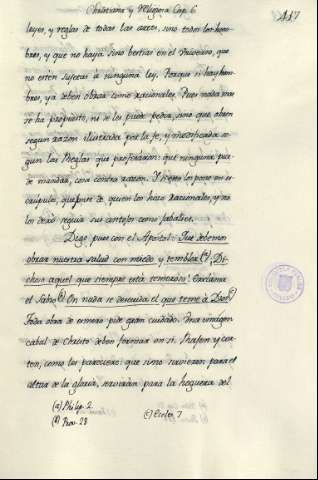 Christiana y Religiosa Cap. 6
117
leyes, y reglas de todas las artes, sino todos los hom-
bres, y que no haya sino bestias en el Universo, que
no estén sujetas a ninguna ley. Porque si hay hom-
bres, ya deben obrar como racionales. Pues nada mas
se ha propuesto, ni se les puede pedir, sino que obren
segun razon ilustrada por la fe, y
gun las Reglas que profesaron: que ninguna pue-
de mandar, cosa contra razon. Y si esto los pone en es-
crupulos, quexense de quien los hizo racionales, y no
los dexó seguir sus antojos como jabalíes.
Digo, pues con el Apostol: Que debemos
obrar nuestra salud con miedo y temblor. (a) Di-
choso aquel que siempre está temeroso! Exclama
el Sabio (b) En nada se descuida el que teme à Dios (c)
Toda obra de esmero pide gran cuidado. Una imagen
cabal de Christo deben formar en si. Rasgen y cor-
ten, como les pareciere: que sino sirvieren para el
altar de la gloria, servirán para la hoguera del
(a) Philip. 2
(b) Prov. 28
(c) Eccles. 7